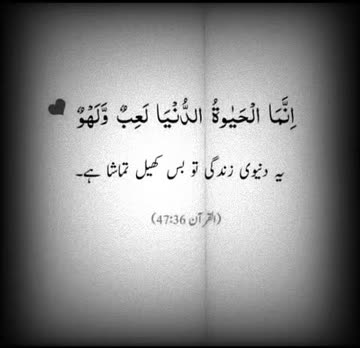 اِنَّمَا الْحَيٰوةُ الدُّنْيَا لَعِبٌ وَّلَهْوٌ
یہ دنیوی زندگی تو بس کھیل تماشا ہے۔
(القرآن 47:36)